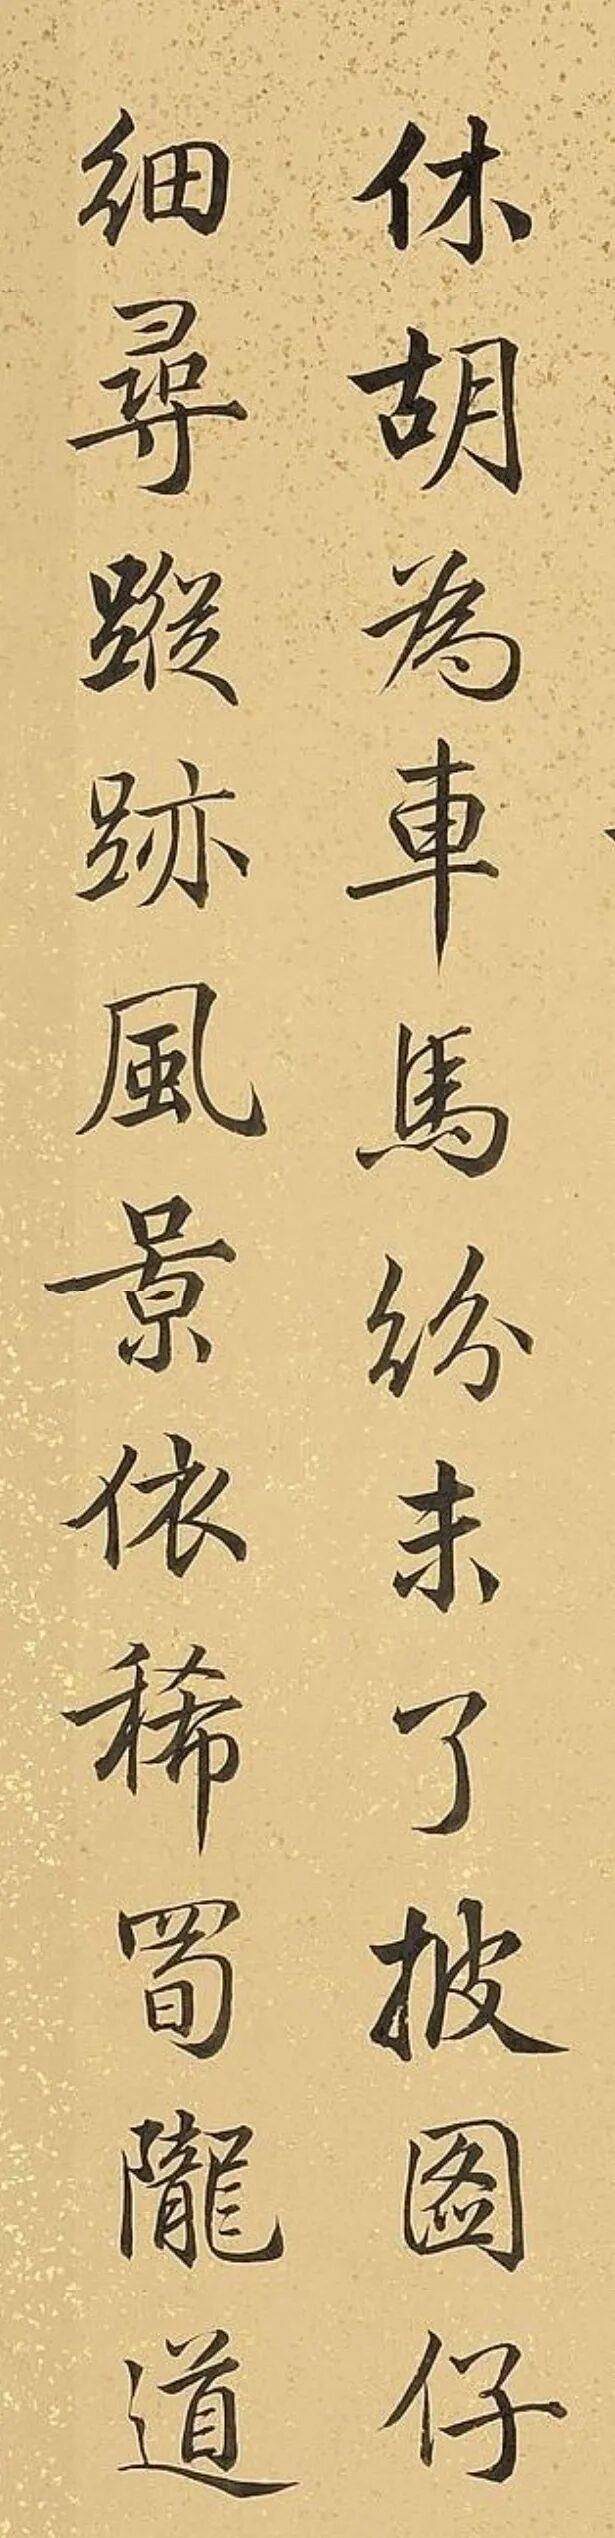 休胡為車馬紛未了披圖仔
細尋蹤跡風景依稀蜀隴道